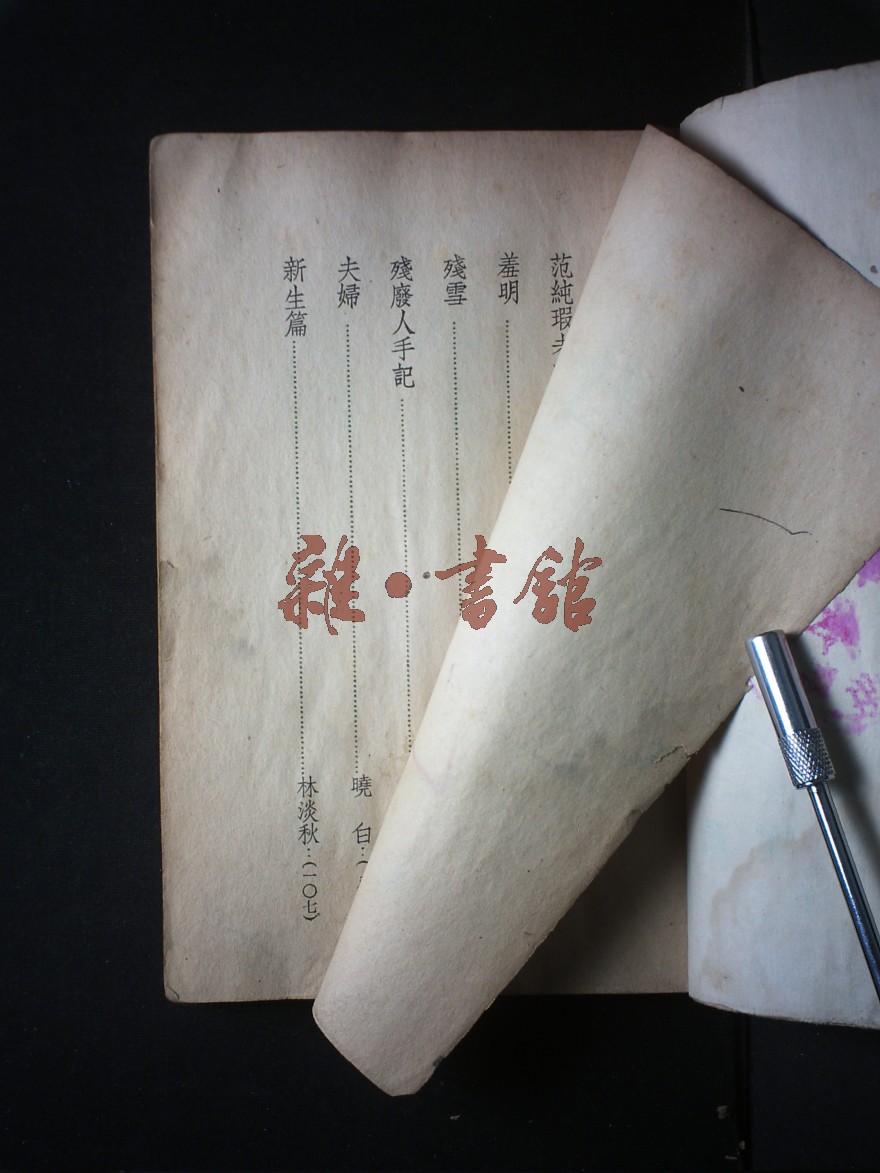 范純瑕
羞明
殘雪
殘廢人手記
夫婦 曉 白…(
新生篇 林淡秋…(一〇七)
雜·書館